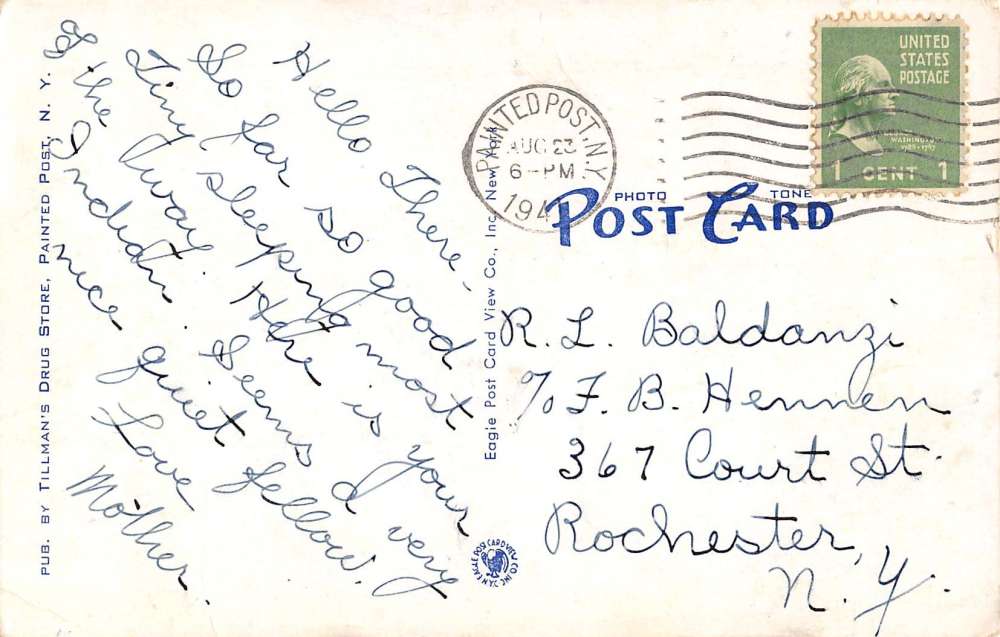 Hello There,
So far so good
Tiny sleeping most
of the way. Here is your
Indian. Seems a very
nice quiet fellow!
Love
Mother.
PUB. BY TILLMAN'S DRUG STORE, PAINTED POST, N. Y.
Eagle Post Card View Co., Inc. New York
PAINTED POST, N.Y.
AUG 23
6-PM
194
UNITED
STATES
POSTAGE
WASHINGTON
1 CENT 1
PHOTO TONE
POST CARD
R. L. Baldanzi
% F. B. Hennen
367 Court St.
Rochester,
N. Y.